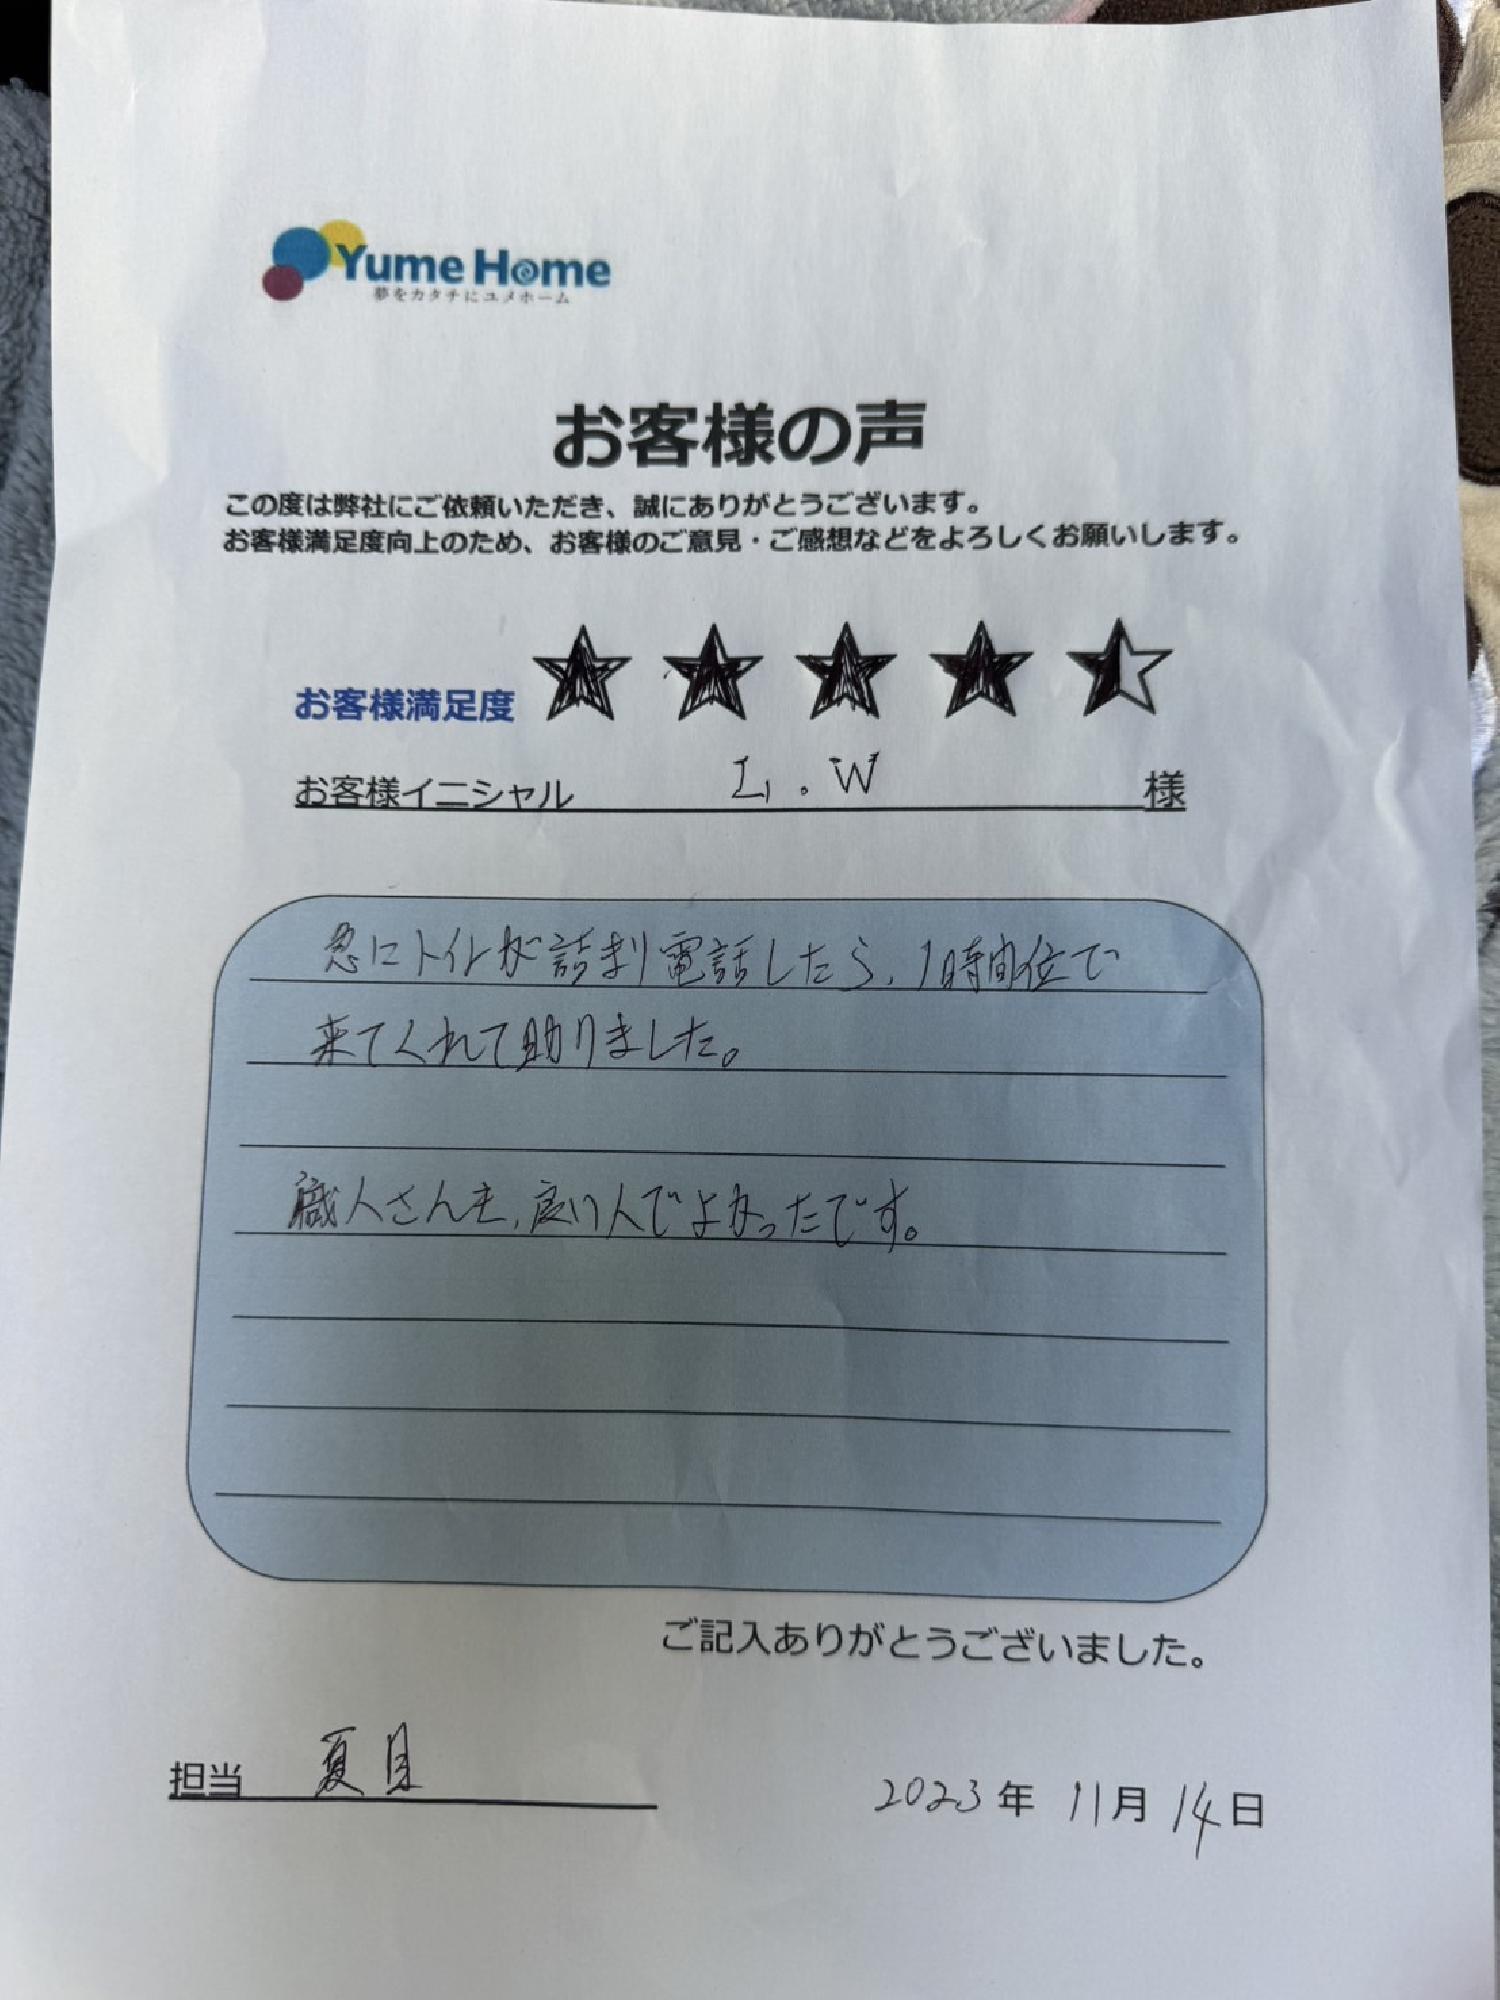 Yume Home
夢をカタチにユメホーム
お客様の声
この度は弊社にご依頼いただき、誠にありがとうございます。
お客様満足度向上のため、お客様のご意見・ご感想などをよろしくお願いします。
お客様満足度
お客様イニシャル L.W 様
急にトイレが詰まり電話したら、1時間位で
来てくれて助りました。
職人さんも、良い人でよかったです。
ご記入ありがとうございました。
担当 夏目
2023年 11月 14日